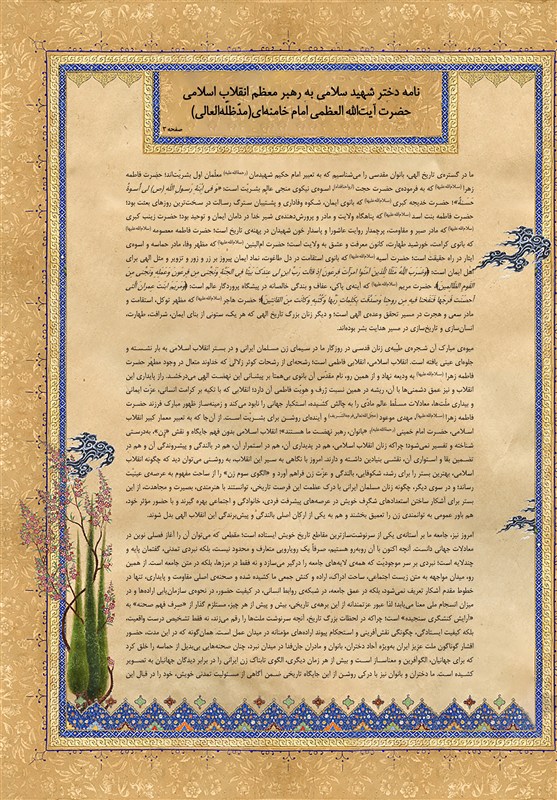 نامه دختر شهید سلامی به رهبر معظم انقلاب اسلامی
حضرت آیت‌الله العظمی امام خامنه‌ای(مدّظلّه‌العالی)
صفحه ۲
ما در گستره‌ی تاریخ الهی، بانوان مقدسی را می‌شناسیم که به تعبیر امام حکیم شهیدمان معلّمان اول بشریّت‌اند؛ حضرت فاطمه
زهرا که به فرموده‌ی حضرت حجت اسوه‌ی نیکوی منجی عالم بشریّت است؛ «و فی إبنَة رسول الله (ص) لی أسوةٌ
حَسَنَةٌ»؛ حضرت خدیجه کبری که بانوی ایمان، شکوه وفاداری و پشتیبان سترگ رسالت در سخت‌ترین روزهای بعثت بود؛
حضرت فاطمه بنت اسد که پناهگاه ولایت و مادر و پرورش‌دهنده‌ی شیر خدا در دامان ایمان و توحید بود؛ حضرت زینب کبری
که مادر صبر و مقاومت، پرچمدار روایت عاشورا و پاسدار خون شهیدان در پهنه‌ی تاریخ است؛ حضرت فاطمه معصومه
که بانوی کرامت، خورشید طهارت، کانون معرفت و عشق به ولایت است؛ حضرت ام‌البنین که مظهر وفا، مادر حماسه و اسوه‌ی
ایثار در راه حقیقت است؛ حضرت آسیه که بانوی استقامت در دل طاغوت، نماد ایمان پیروز بر زر و زور و تزویر و مثل الهی برای
اهل ایمان است؛ ﴿وضرب الله مثلًا للذین آمنوا امرأت فرعون إذ قالت رب ابن لی عندک بیتًا فی الجنة ونجنی من فرعون وعمله ونجنی من
القوم الظالمین﴾؛ حضرت مریم که آینه‌ی پاکی، عفاف و بندگی خالصانه در پیشگاه پروردگار عالم است؛ ﴿ومریم ابنت عمران التی
أحصنت فرجها فنفخنا فیه من روحنا وصدقت بکلمات ربها وکتبه وکانت من القانتین﴾؛ حضرت هاجر که مظهر توکل، استقامت و
مادر سعی و هجرت در مسیر تحقق وعده‌ی الهی است؛ و دیگر زنان بزرگ تاریخ الهی که هر یک، ستونی از بنای ایمان، شرافت، طهارت،
انسان‌سازی و تاریخ‌سازی در مسیر هدایت بشر بوده‌اند.
میوه‌ی مبارک آن شجره‌ی طیّبه‌ی زنان قدسی در روزگار ما در سیمای زن مسلمان ایرانی و در بستر انقلاب اسلامی به بار نشسته و
جلوه‌ای عینی یافته است. انقلاب اسلامی، انقلابی فاطمی است؛ رشحه‌ای از رشحات کوثر زلالی که خداوند متعال در وجود مطهّر حضرت
فاطمه زهرا به ودیعه نهاد و از همین رو، نام مقدّس آن بانوی بی‌همتا بر پیشانی این نهضت الهی می‌درخشد. راز پایداری این
انقلاب و نیز عمق دشمنی‌ها با آن، ریشه در همین نسبت ژرف و هویّت فاطمی آن دارد؛ انقلابی که با تکیه بر کرامت انسانی، عزت ایمانی
و بیداری ملّت‌ها، معادلات مسلّط عالم مادّی را به چالش کشیده، استکبار جهانی را نابود می‌کند و زمینه‌ساز ظهور مبارک فرزند حضرت
فاطمه زهرا مهدی موعود و آینده‌ای روشن برای بشریّت است. از آن‌جا که به تعبیر معمار کبیر انقلاب
اسلامی، حضرت امام خمینی «بانوان، رهبر نهضت ما هستند.»؛ انقلاب اسلامی بدون فهم جایگاه و نقش «زن»، به‌درستی
شناخته و تفسیر نمی‌شود؛ چراکه زنان انقلاب اسلامی، هم در پدیداری آن، هم در استمرار آن، هم در بالندگی و پیشروندگی آن و هم در
تضمین بقا و استواری آن، نقشی بنیادین داشته و دارند. امروز با نگاهی به سیر این انقلاب، به روشنی می‌توان دید که چگونه انقلاب
اسلامی، بهترین بستر را برای رشد، شکوفایی، بالندگی و عزّت زن فراهم آورد و «الگوی سوم زن» را از ساحت مفهوم به عرصه‌ی عینیّت
رساند؛ و در سوی دیگر، چگونه زنان مسلمان ایرانی با درک عظمت این فرصت تاریخی، توانستند با هنرمندی، بصیرت و مجاهدت، از این
بستر برای آشکار ساختن استعدادهای شگرف خویش در عرصه‌های پیشرفت فردی، خانوادگی و اجتماعی بهره گیرند و با حضور مؤثر خود،
هم باور عمومی به توانمندی زن را تعمیق بخشند و هم به یکی از ارکان اصلی بالندگی و پیش‌برندگی این انقلاب الهی بدل شوند.
امروز نیز، جامعه ما بر آستانه‌ی یکی از سرنوشت‌سازترین مقاطع تاریخ خویش ایستاده است؛ مقطعی که می‌توان آن را آغاز فصلی نوین در
معادلات جهانی دانست. آنچه اکنون با آن روبه‌رو هستیم، صرفاً یک رویارویی متعارف و محدود نیست، بلکه نبردی تمدنی، گفتمان پایه و
چندلایه است؛ نبردی بر سر موجودیت که همه‌ی لایه‌های جامعه را درگیر می‌سازد و نه فقط در مرزها، بلکه در متن جامعه است. از همین
رو، میدان مواجهه به متن زیست اجتماعی، ساحت ادراک، اراده و کنش جمعی ما کشیده شده و صحنه‌ی اصلی مقاومت و پایداری، تنها در
خطوط مقدم آشکار تعریف نمی‌شود، بلکه در عمق جامعه، در شبکه‌ی روابط انسانی، در کیفیت حضور، در نحوه‌ی سازمان‌یابی اراده‌ها و در
میزان انسجام ملی معنا می‌یابد؛ لذا عبور عزتمندانه از این برهه‌ی تاریخی، بیش و پیش از هر چیز، مستلزم گذار از «صرف فهم صحنه» به
«آرایش کنشگری سنجیده» است؛ چراکه در لحظات بزرگ تاریخ، آنچه سرنوشت ملت‌ها را رقم می‌زند، نه فقط تشخیص درست واقعیت،
بلکه کیفیت ایستادگی، چگونگی نقش‌آفرینی و استحکام پیوند اراده‌های مؤمنانه در میدان عمل است. همان‌گونه که در این مدت، حضور
اقشار گوناگون ملت عزیز ایران به‌ویژه آحاد دختران، بانوان و مادران جان‌فدا در میدان نبرد، چنان صحنه‌هایی بی‌بدیل از حماسه را خلق کرد
که برای جهانیان، الگوآفرین و معناساز است و بیش از هر زمان دیگری، الگوی تابناک زن ایرانی را در برابر دیدگان جهانیان به تصویر
کشیده است. ما دختران و بانوان نیز با درکی روشن از این جایگاه تاریخی ضمن آگاهی از مسئولیت تمدنی خویش، خود را در قبال این